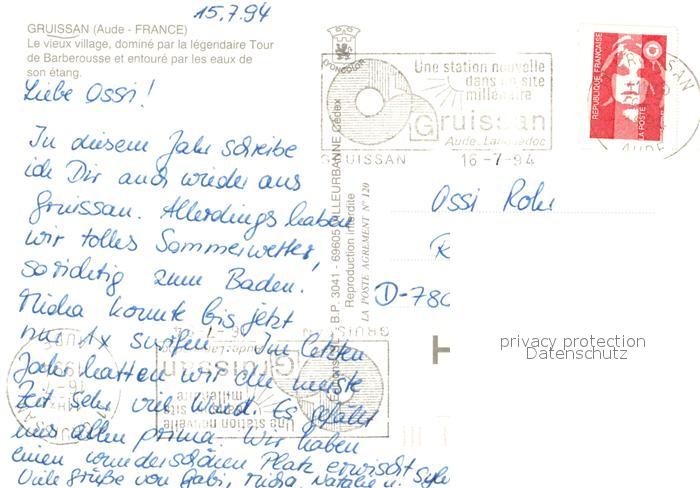 15.7.94
GRUISSAN (Aude - FRANCE)
Le vieux village, dominé par la légendaire Tour
de Barberousse et entouré par les eaux de
son étang.
Liebe Ossi!
In diesem Jahr schreibe
ich Dir auch wieder aus
Gruissan. Allerdings haben
wir tolles Sommerwetter,
so richtig zum Baden.
Micha konnte bis jetzt
nur 1x surfen. Im letzten
Jahr hatten wir die meiste
Zeit sehr viel Wind. Es gefällt
uns allen prima. Wir haben
einen wunderschönen Platz erwischt
Viele Grüße von Gabi, Micha, Natalie u. Sylv
Une station nouvelle
dans un site
millénaire
Gruissan
Aude. Languedoc
GRUISSAN 16-7-94
REPUBLIQUE FRANÇAISE
LA POSTE
GRUISSAN
AUDE
B.P. 3041 - 69605 VILLEURBANNE Cedex
Reproduction interdite
LA POSTE AGREMENT N° 120
Ossi Rohr
R
D-780
privacy protection
Datenschutz
Une station nouvelle
dans un site
millénaire
Gruissan
Aude. Languedoc
GRUISSAN